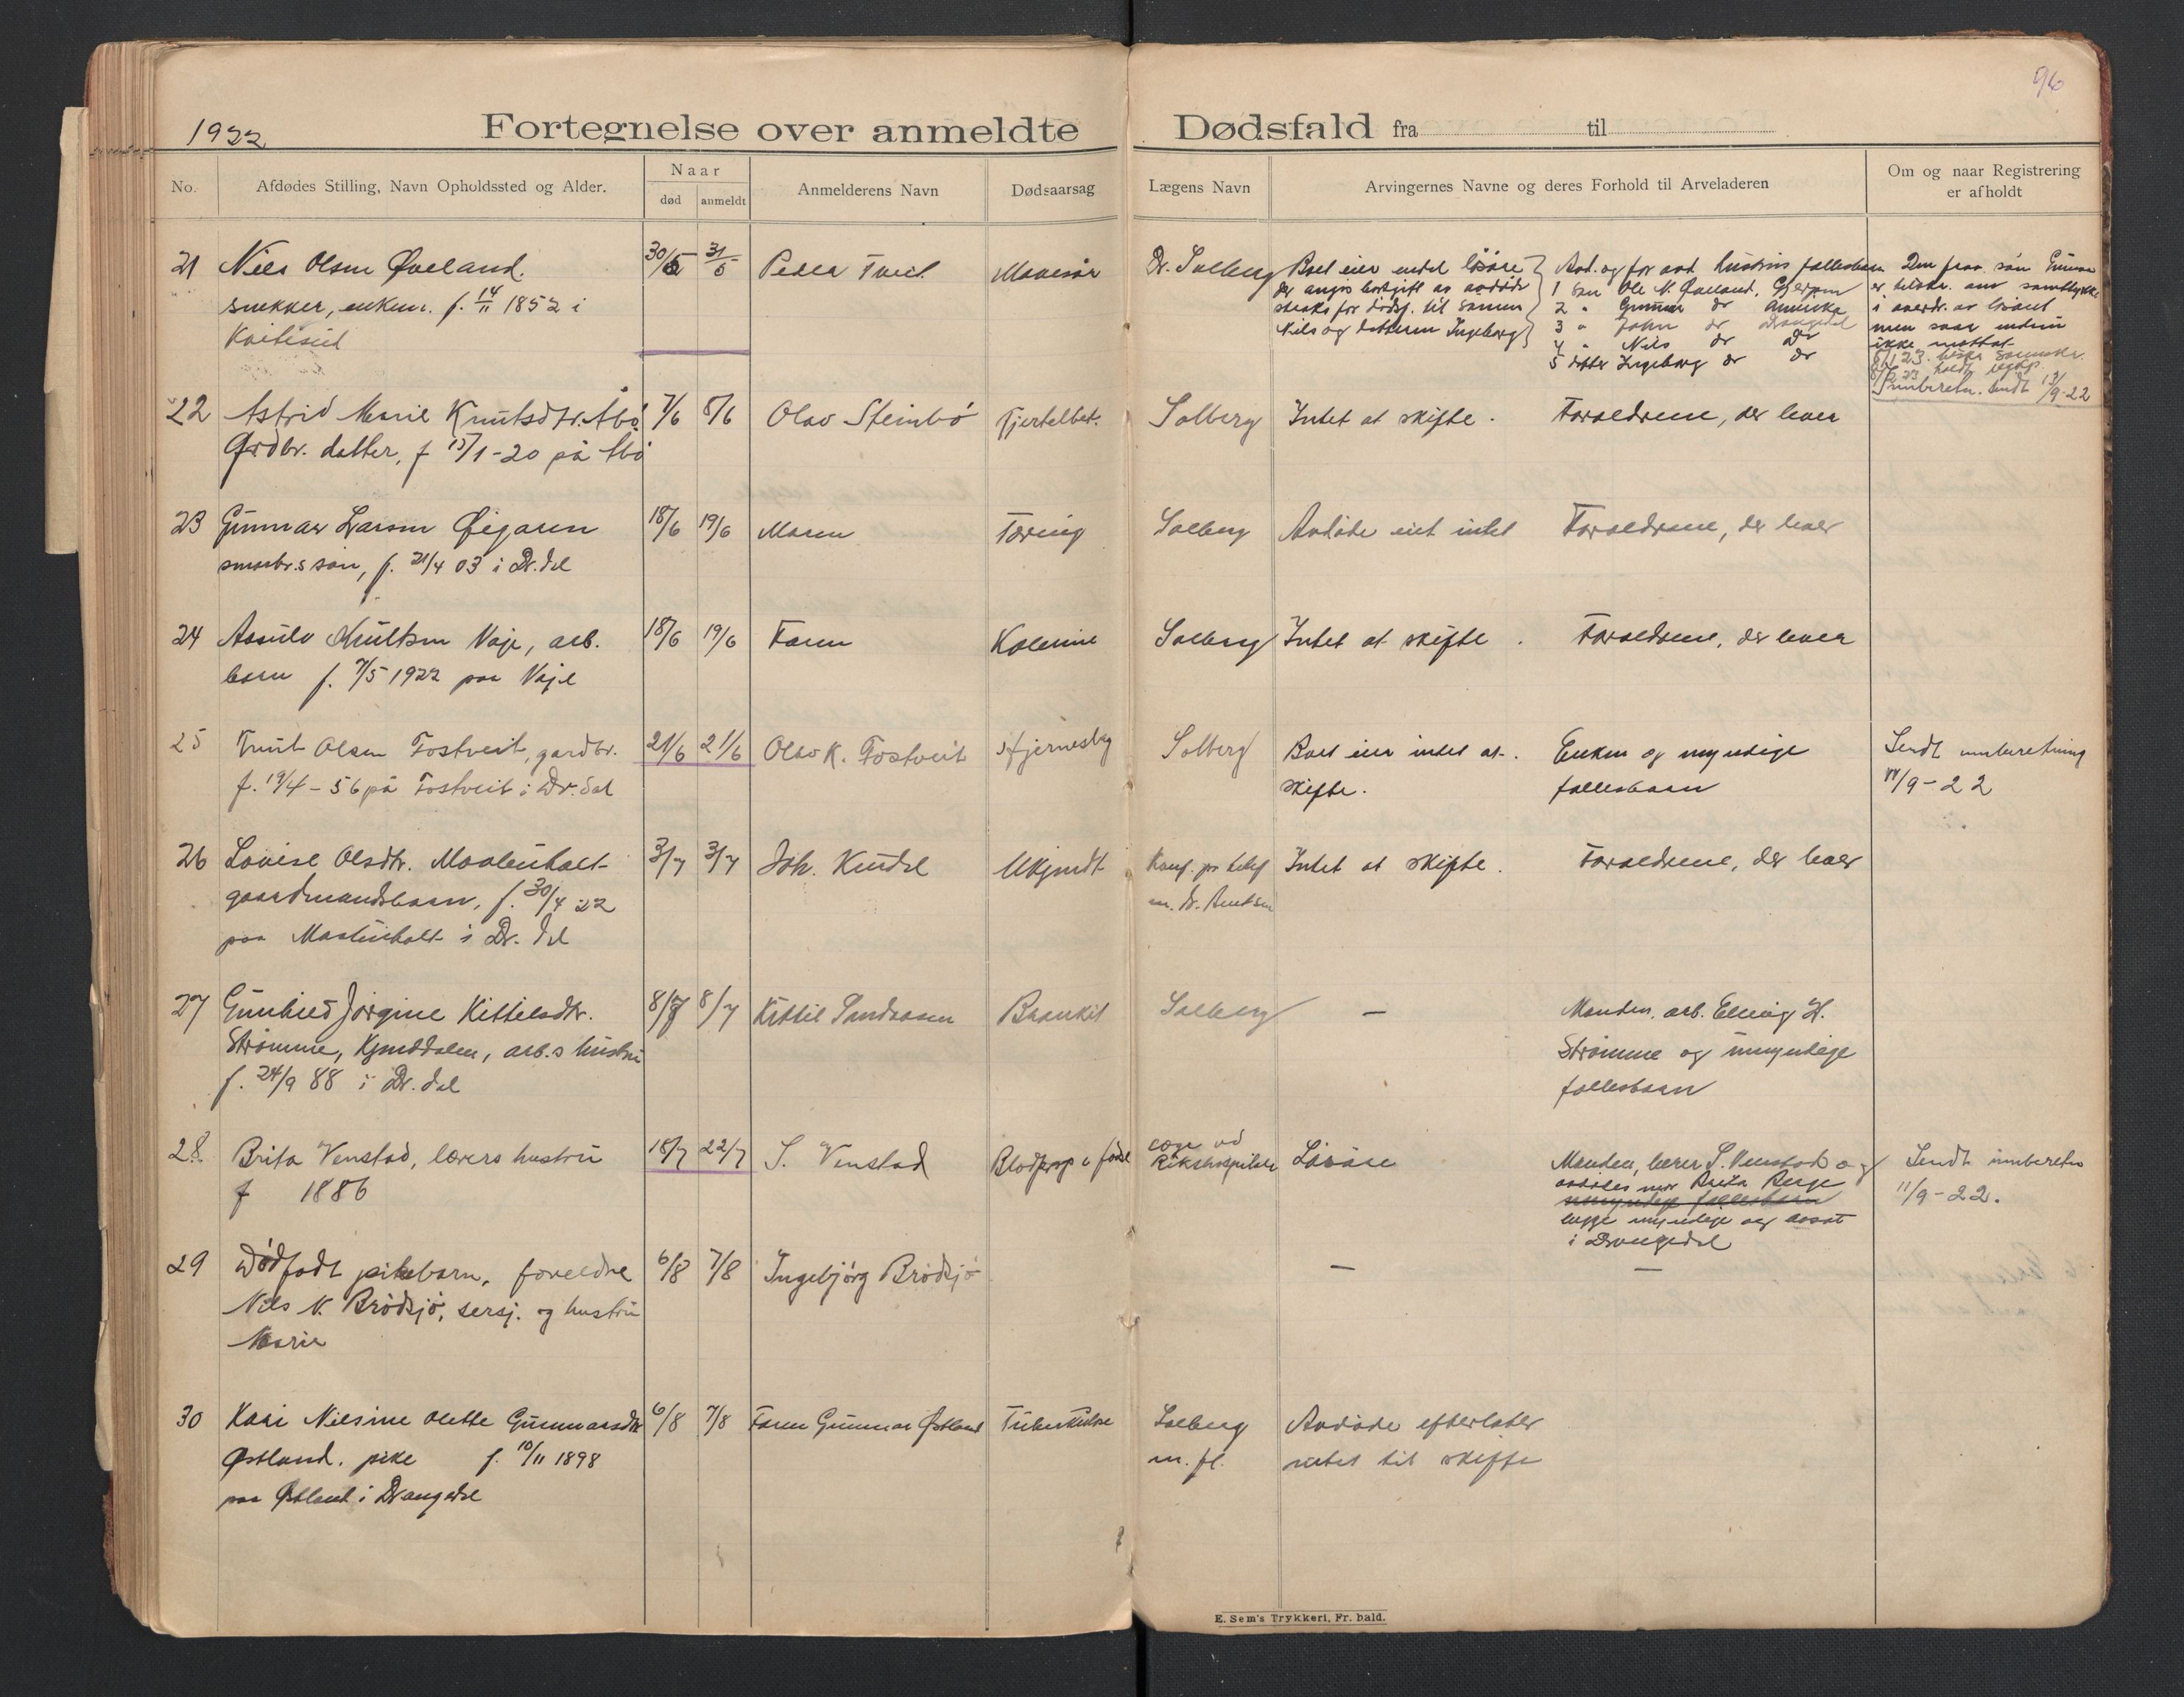 96
1922
Fortegnelse over anmeldte Dødsfald fra til
No.
Afdødes Stilling, Navn Opholdssted og Alder.
Naar
død
anmeldt
Anmelderens Navn
Dødsaarsag
Lægens Navn
Arvingernes Navne og deres Forhold til Arveladeren
Om og naar Registrering
er afholdt
21 Niels Olsen Øveland.
snekker, enkem. f. 14/11 1852 i
30/5 31/5 Peder Tveit Mavesår Dr. Solberg
Boet eier endel lösöre
der angis bortgit av avdöde
straks før dödsf. til sönnen
Nils og datteren Ingeborg
Avd. og før avd. hustrus fællesbarn
1 Sön Ole N. Øveland, Gjerpen
2 " Gunnar do Amerika
3 " John do Drangedal
4 " Nils do do
5 datter Ingeborg do do
i overdr. av lösöret
men svar endnu
ikke mottat
Innberetn. sendt 13/9-22
22 Astrid Marie Knutsdtr. Åbø
Grdbr. datter, f 15/1-20 på Åbø
7/6 8/6 Olav Steinbö Hjertelbet. Solberg Intet at skifte. Foreldrene, der lever
23 Gunnar Larsen Øigaren
smaabr.s sön, f. 21/4 03 i Dr.dal
18/6 19/6 Moren Tæring Solberg Avdöde eiet intet Foreldrene, der lever
24 Assulv Knutsen Vaje, arb.
barn f. 7/5 1922 paa Vaje
18/6 19/6 Faren Kolerine Solberg Intet at skifte. Foreldrene, der lever
25 Knut Olsen Tostveit, gardbr.
f. 19/4-56 på Tostveit i Dr.dal
21/6 21/6 Olav K. Tostveit Hjernesleg Solberg
Boet eier intet at
skifte.
Enken og myndige
fællesbarn
Sendt innberetning
11/9-22
26 Lovise Olsdtr. Moolenholt
gaardmandsbarn, f. 30/4 22
paa Mostenholt i Dr. dal
3/7 3/7 Joh. Kindel Ukjendt
Konf. pr telef
m. Dr. Bentsen
Intet at skifte. Foreldrene, der lever
27 Gunhild Jörgine Kittilsdtr.
Strömme, Kjenddalen, arb.s hustru
f. 24/9 88 i Dr.dal
8/7 8/7 Kittil Sandaasen Bronkit Solberg —
Manden, arb. Elling H.
Strömme og umyndige
fællesbarn
28 Brita Venstad, lærers hustru
f 1886
18/7 22/7 S. Venstad Blodprop i födsl
Læge ved
Rikshospitalet
Lösöre
Manden, lærer S. Venstad og
avdödes mor Brita Berge
umyndige fællesbarn
begge myndige og bosat
i Drangedal
Sendt innberetn
11/9-22.
29 Dødfødt pikebarn, foreldre
Nils N. Brödsjö, sersj. og hustru
Marie
6/8 7/8 Ingebjörg Brödsjö — —
30 Kari Nilsine Olette Gunnarsdtr
Østland, pike f. 10/11 1898
paa Østland i Drangedal
6/8 7/8 Faren Gunnar Østland Tuberkulose
Solberg
m. fl.
Avdöde efterlater
intet til skifte
E. Sem's Trykkeri, Fr.hald.